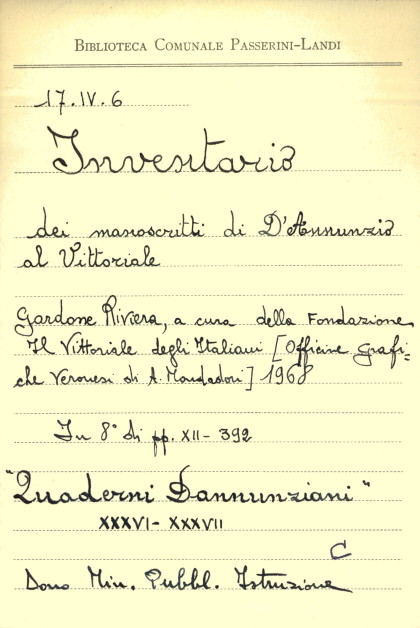 BIBLIOTECA COMUNALE PASSERINI-LANDI
17.IV.6
Inventario
dei manoscritti di D'Annunzio
al Vittoriale
Gardone Riviera, a cura della Fondazione
Il Vittoriale degli Italiani [Officine grafi=
che Veronesi di A. Mondadori] 1968
In 8° di pp. XII-392
"Quaderni Dannunziani"
XXXVI-XXXVII
C
Dono Min. Pubbl. Istruzione